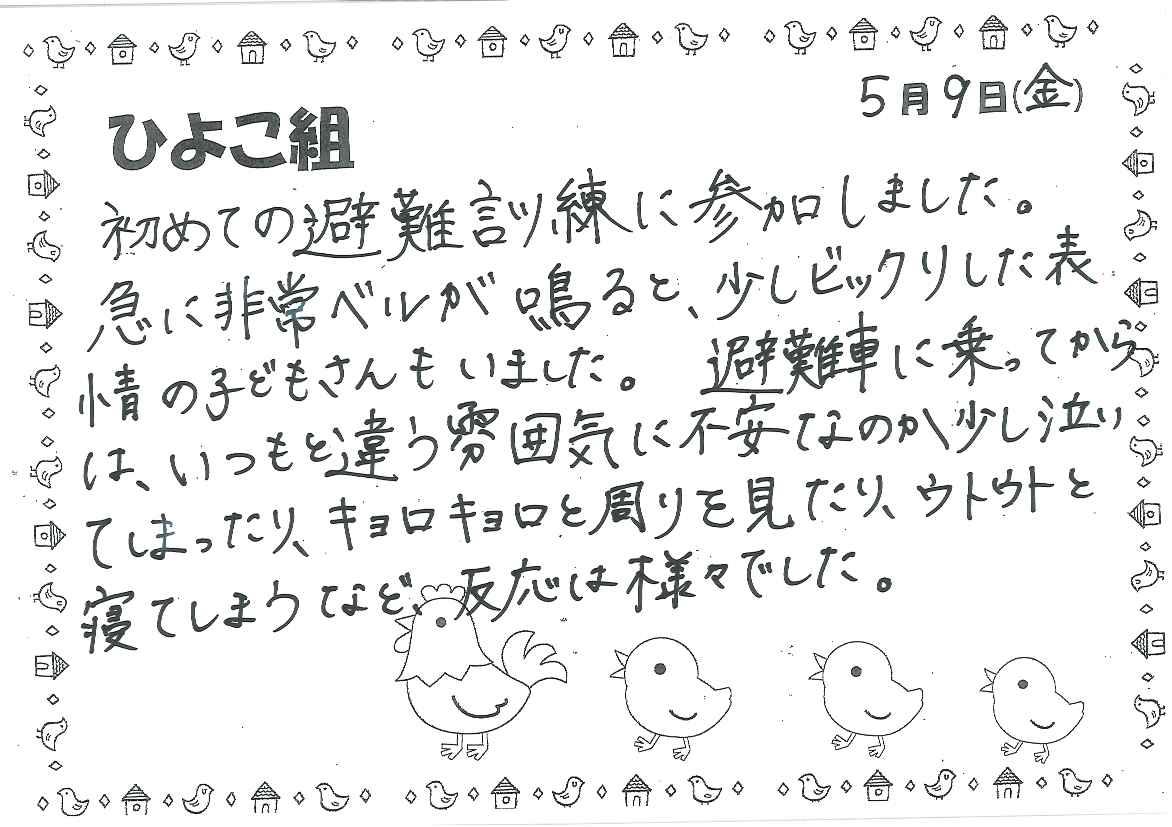 5月9日(金)
ひよこ組
初めての避難訓練に参加しました。
急に非常ベルが鳴ると、少しビックリした表
情の子どもさんもいました。 避難車に乗ってから
は、いつもと違う雰囲気に不安なのか少し泣い
てしまったり、キョロキョロと周りを見たり、ウトウトと
寝てしまうなど、反応は様々でした。